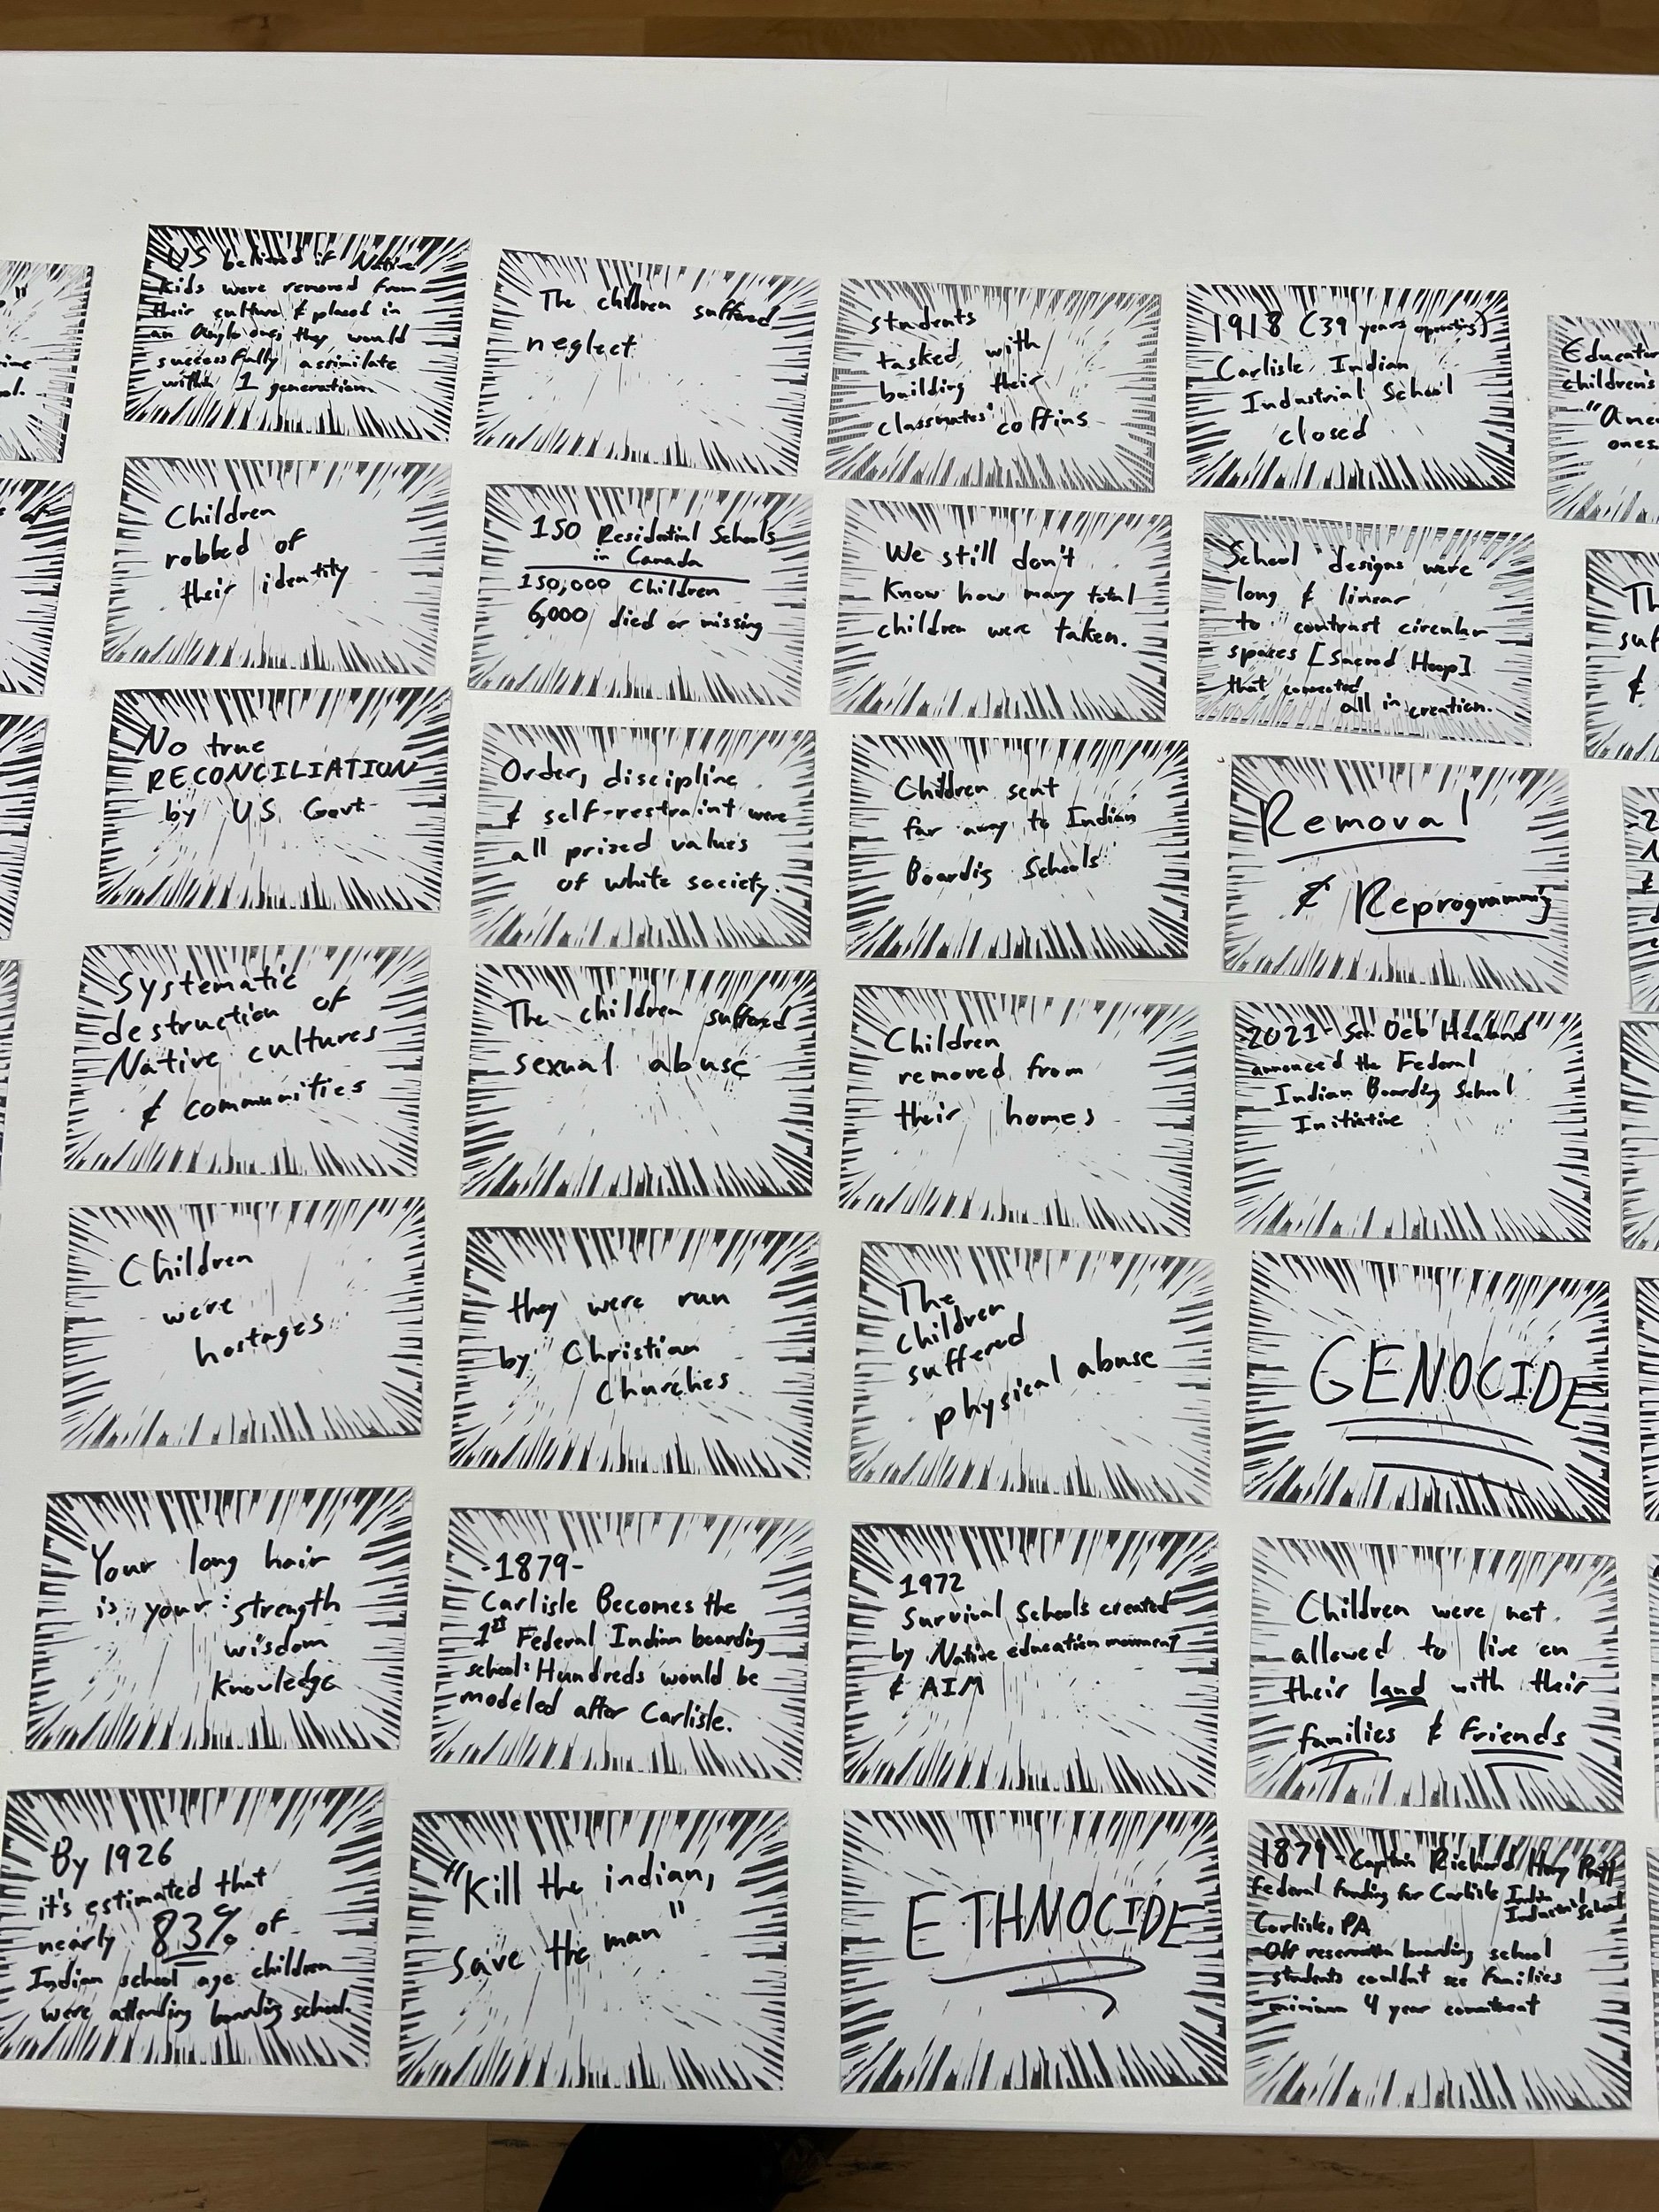 US believed if Native
kids were removed from
their culture & placed in
an Anglo one, they would
successfully assimilate
within 1 generation
The children suffered
neglect
students
tasked with
building their
classmates' coffins
1918 (39 years operating)
Carlisle Indian
Industrial School
closed
children's
ones.
Children
robbed of
their identity
150 Residential Schools
in Canada
150,000 Children
6,000 died or missing
We still don't
know how many total
children were taken.
School designs were
long & linear
to contrast circular
spaces [Sacred Hoop]
that connected
all in creation.
No true
RECONCILIATION
by US Govt
Order, discipline
& self-restraint were
all prized values
of white society.
Children sent
far away to Indian
Boarding Schools
Removal
& Reprogramming
Systematic
destruction of
Native cultures
& communities
The children suffered
sexual abuse
Children
removed from
their homes
2021- Deb
announced the Federal
Indian Boarding School
Initiative
Children
were
hostages
they were run
by Christian
Churches
The
children
suffered
physical abuse
GENOCIDE
Your long hair
is your strength
wisdom
knowledge
-1879-
Carlisle Becomes the
1st Federal Indian boarding
school: Hundreds would be
modeled after Carlisle.
1972
Survival Schools created
by Native education movement
& AIM
Children were not
allowed to live on
their land with their
families & friends
By 1926
it's estimated that
nearly 83% of
Indian school age children
were attending boarding school.
"Kill the indian,
save the man"
ETHNOCIDE
1879- Captain Richard Henry Pratt
federal funding for Carlisle Indian
Industrial School
Carlisle, PA
Off reservation boarding school
students couldnt see families
minimum 4 year commitment